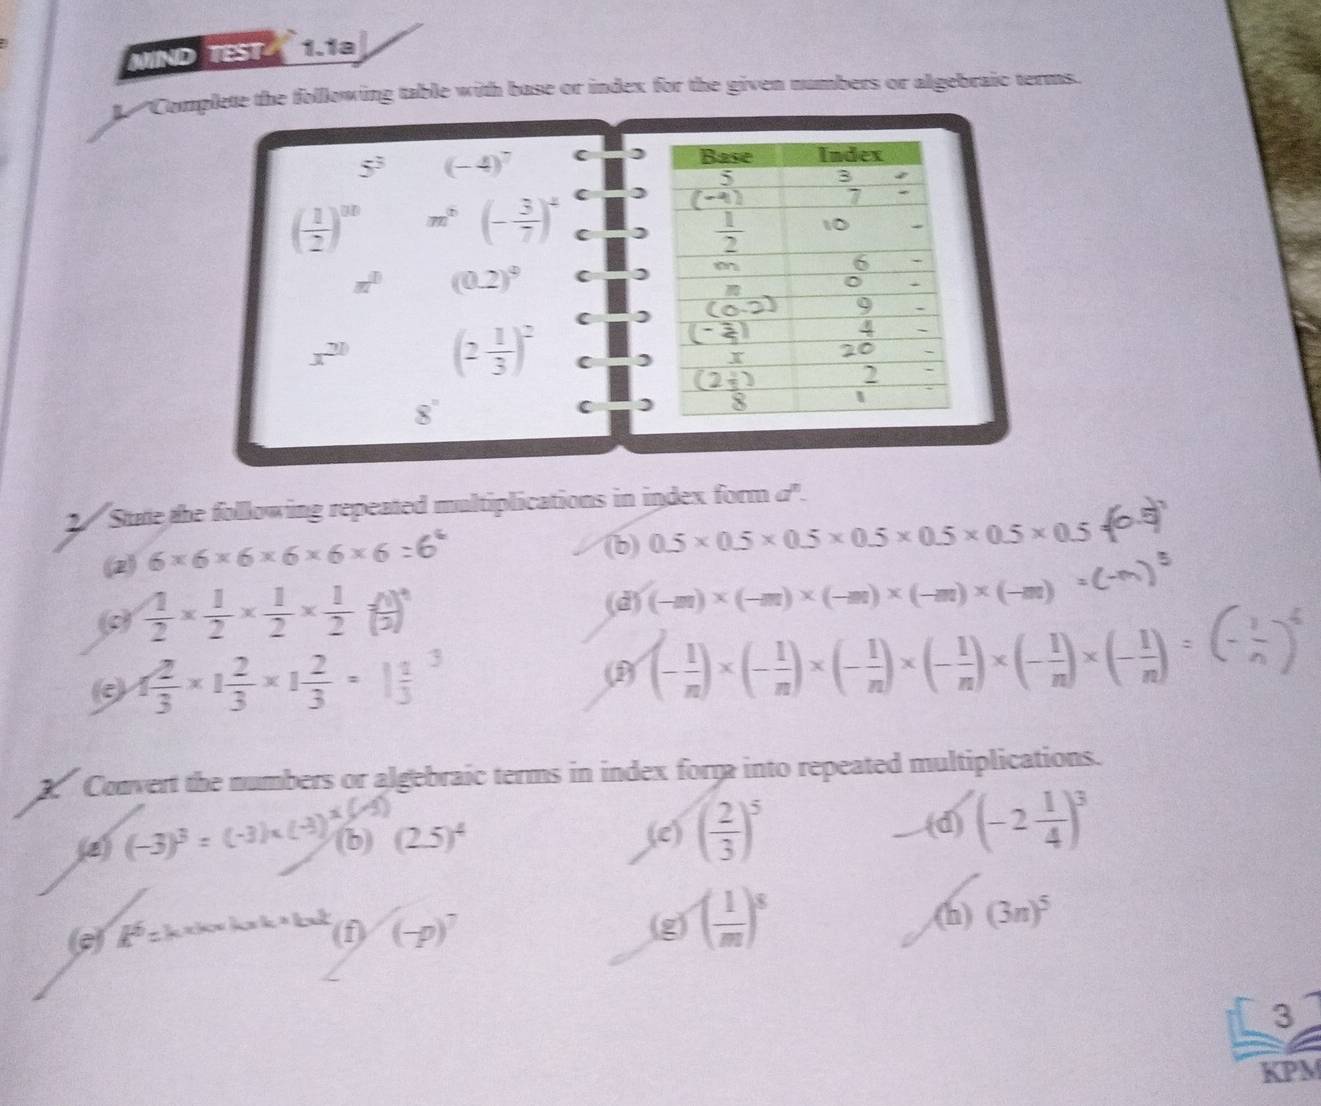 MIND TEST 1.1a
1. Complete the following table with base or index for the given numbers or algebraic terms.
5³ (−4)⁷
(1/2)¹⁰ m⁶ (−3/7)⁴
n⁰ (0.2)⁹
x²⁰ (2 1/3)²
8
Base Index
5 3
(-4) 7
1/2 10
m 6
n 0
(0.2) 9
4
x 20
2
8 1
2. State the following repeated multiplications in index form aⁿ.
(a) 6 × 6 × 6 × 6 × 6 × 6 = 6⁶ (b) 0.5 × 0.5 × 0.5 × 0.5 × 0.5 × 0.5 × 0.5
(c) 1/2 × 1/2 × 1/2 × 1/2 (d) (−m) × (−m) × (−m) × (−m) × (−m) = (-m)⁵
(e) 1 2/3 × 1 2/3 × 1 2/3 = (f) (−1/n) × (−1/n) × (−1/n) × (−1/n) × (−1/n) × (−1/n) = (-1/n)⁶
3. Convert the numbers or algebraic terms in index form into repeated multiplications.
(a) (−3)³ = (-3) × (-3) × (-3) (b) (2.5)⁴ (c) (2/3)⁵ (d) (−2 1/4)³
(e) k⁶ = k × k × k × k × k × k (f) (−p)⁷ (g) (1/m)⁸ (h) (3n)⁵
3
KPM